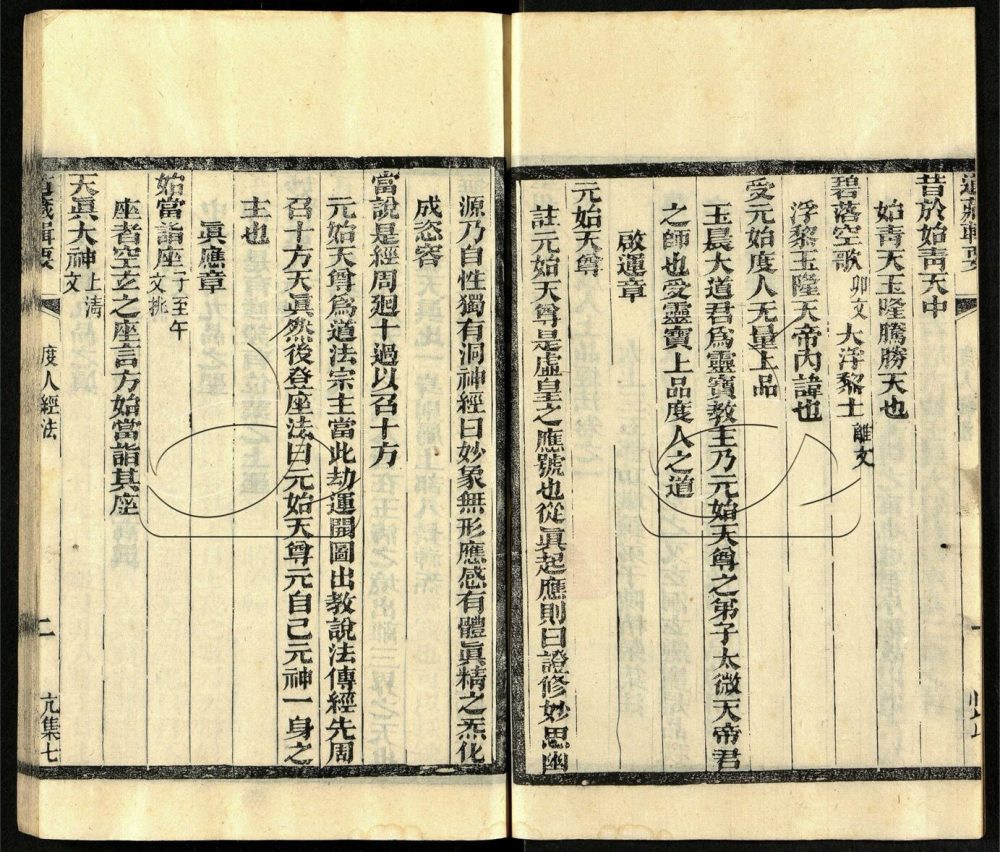 道藏輯要
昔於始青天中
始青天玉隆騰勝天也
碧落空歌卯文大浮黎土離文
浮黎玉隆天帝內諱也
受元始度人无量上品
玉晨大道君爲靈寶教主乃元始天尊之弟子太微天帝君
之師也受靈寶上品度人之道
啟運章
元始天尊
註元始天尊是虛皇之應號也從眞起應則曰證修妙思幽
源乃自性獨有洞神經曰妙象無形應感有體眞精之炁化
成姿容
當說是經周廻十過以召十方
元始天尊爲道法宗主當此劫運開圖出教說法傳經先周
召十方天眞然後登座法曰元始天尊元自己元神一身之
主也
眞應章
始當詣座子至午文挑
座者空玄之座言方始當詣其座
天眞大神上清文
道藏輯要
度人經法
二
亢集七